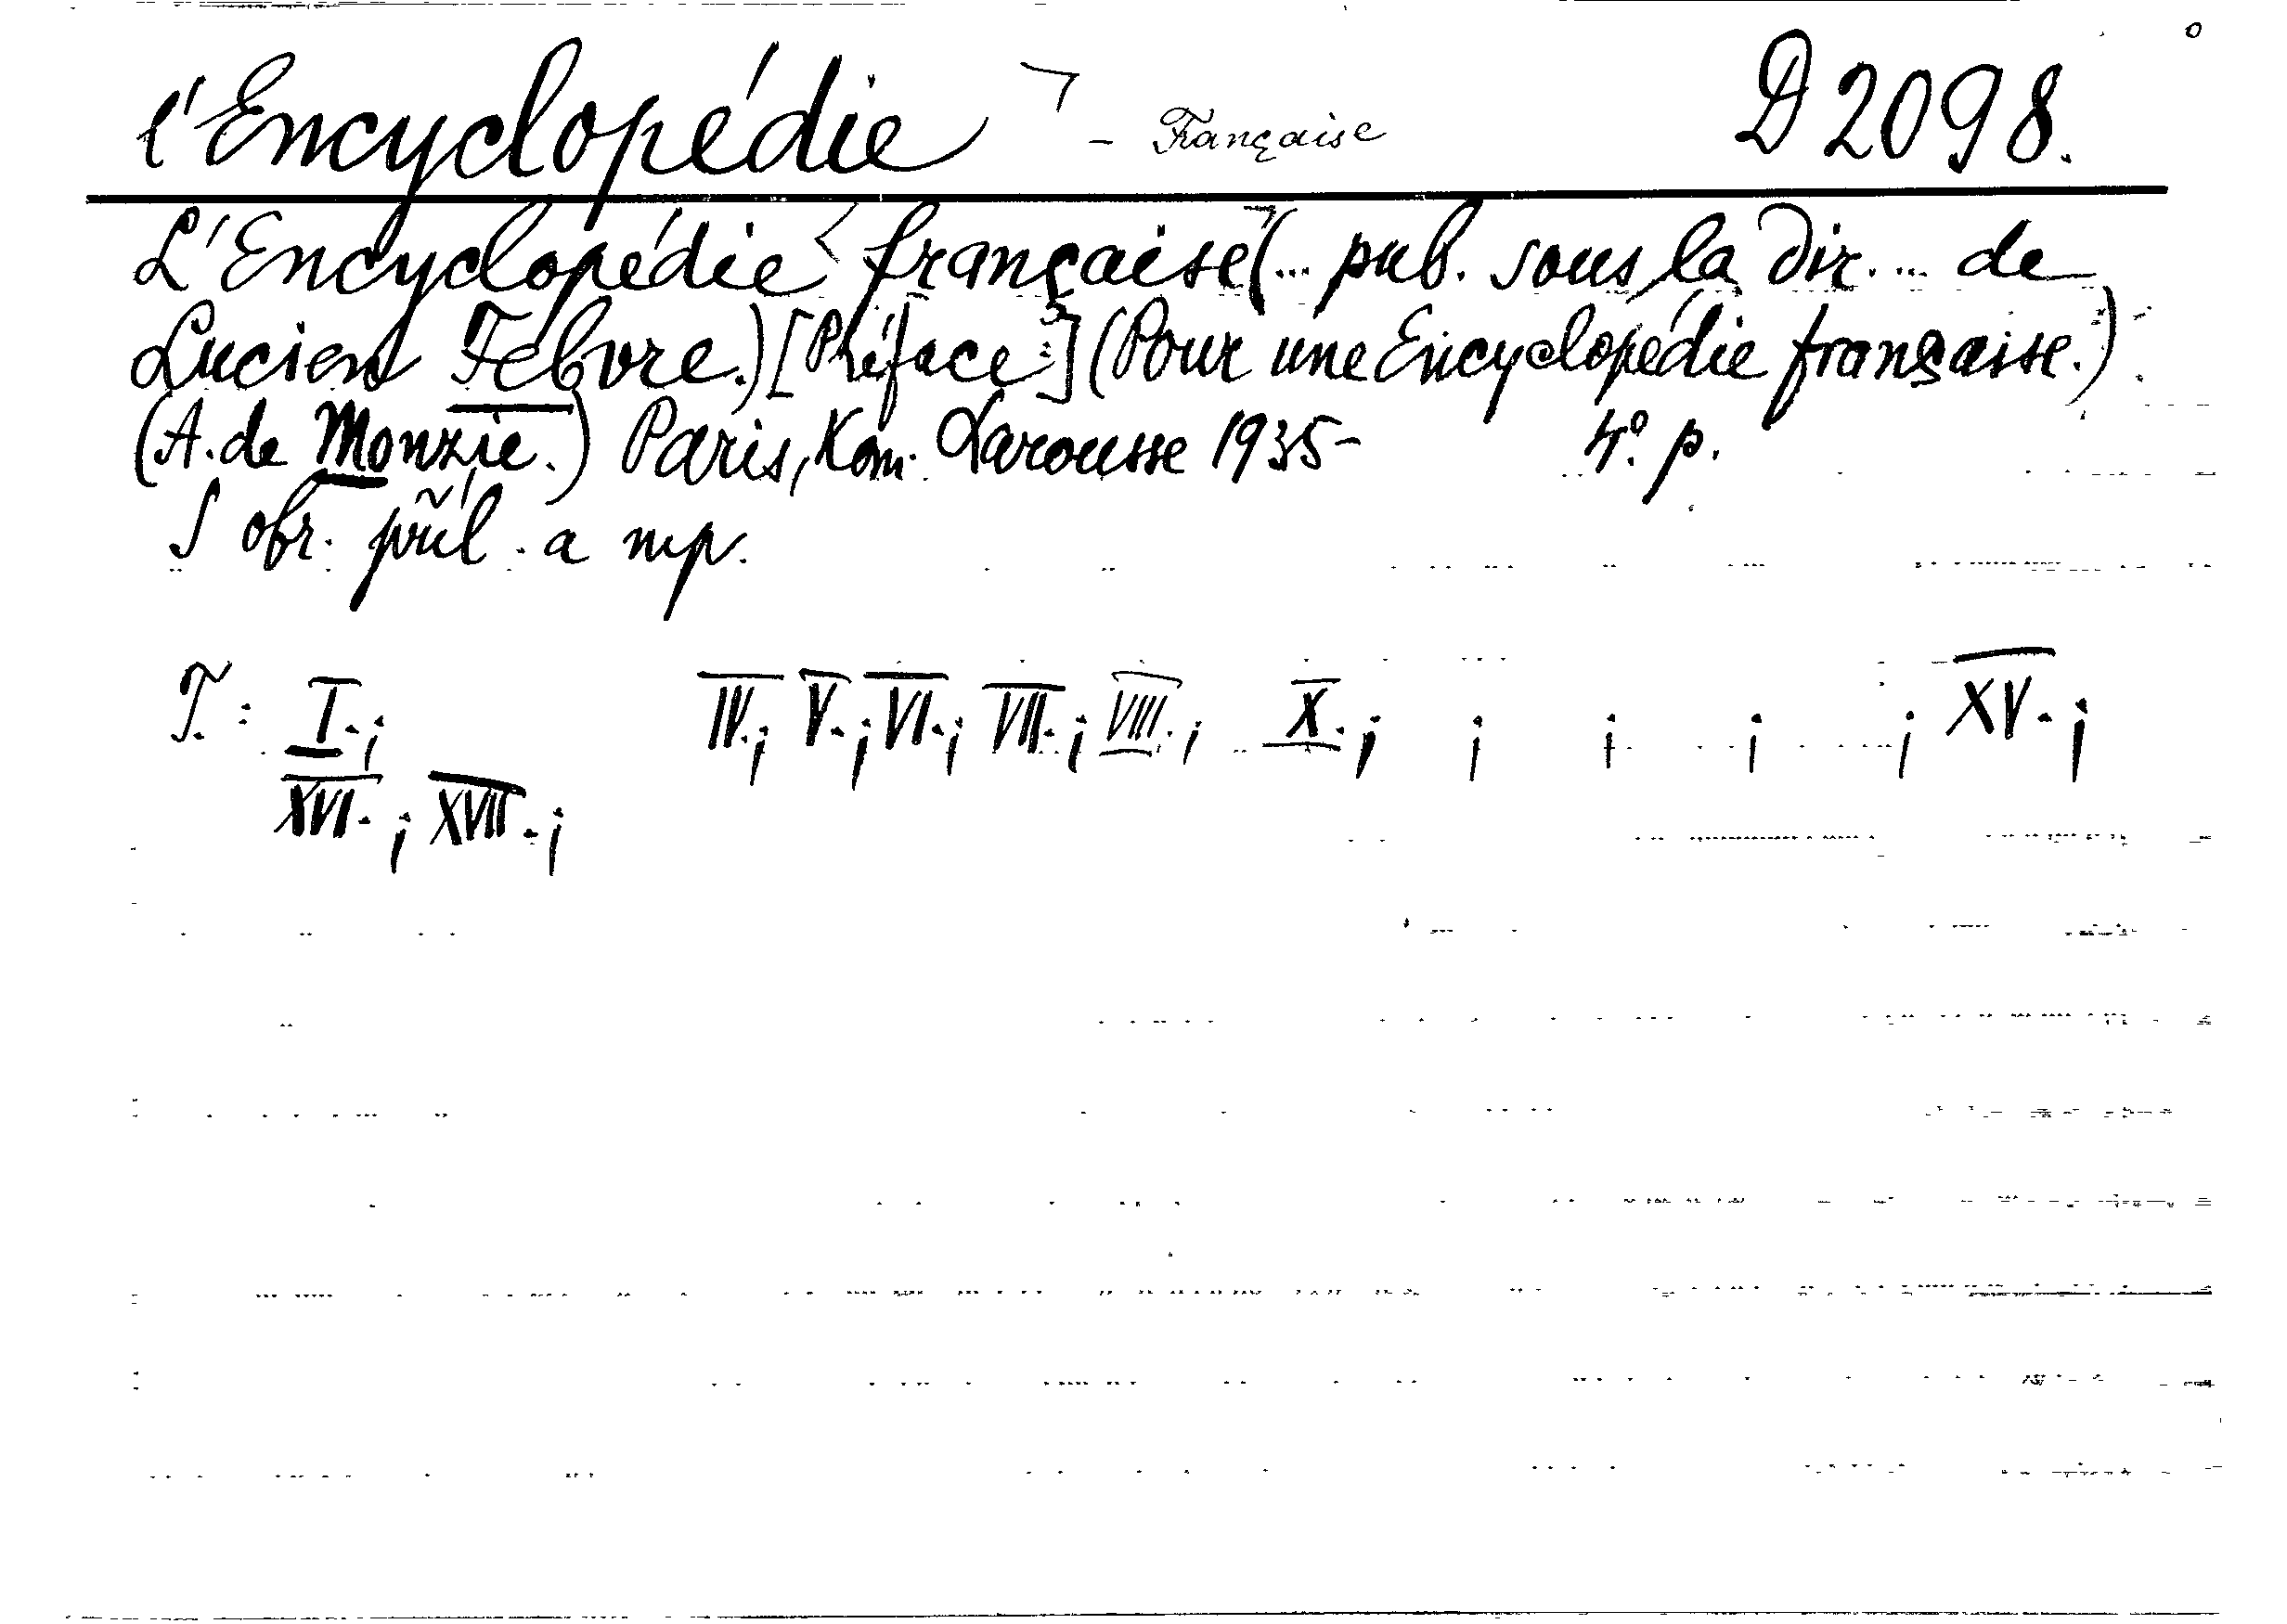 l'Encyclopédie - Française D 2098.
L'Encyclopédie française (... pub. sous la dir. ... de
Lucien Febvre.) [Préface:] (Pour une Encyclopédie française.)
(A. de Monzie.) Paris, Kom. Larousse 1935- 4º. p.
S obr. příl. a mp.
T.: I.; IV.; V.; VI.; VII.; VIII.; X.; ; ; ; ; XV.;
XVI.; XVII.;